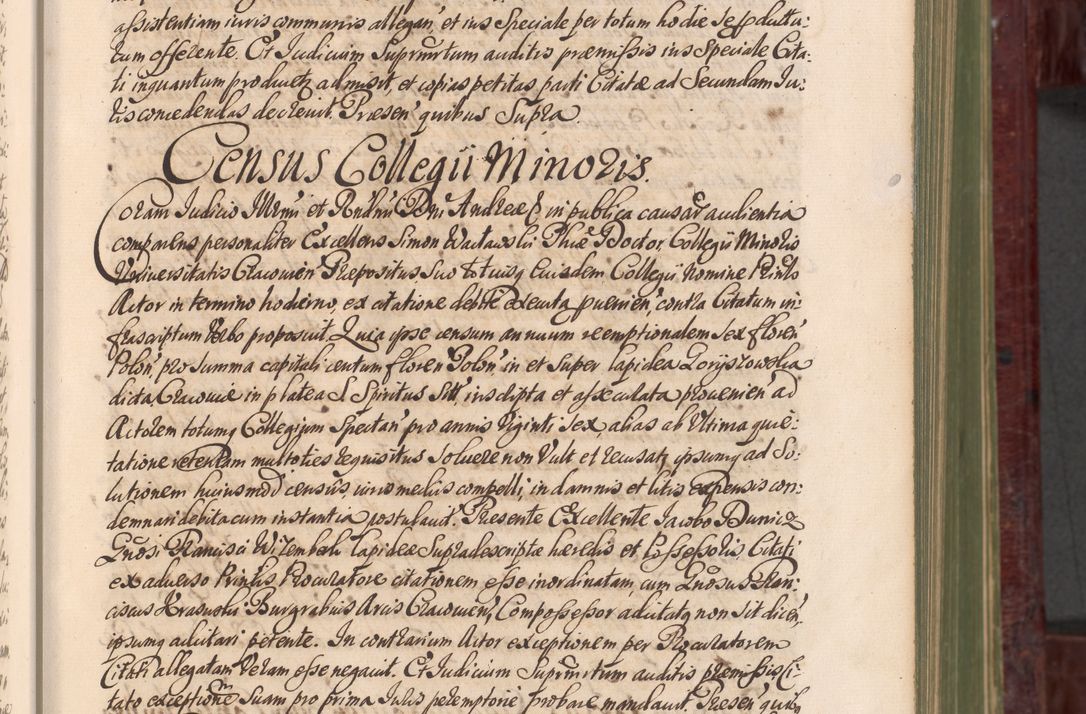 assistentiam iuris communis allegan', et ius Speciale per totum hodie se
tum offerente. Et Judicium Suprmrtum auditis præmissis ius Speciale Cita-
ti inquantum admisit, et copias petitas parti Citatæ ad Secundam Ju-
ris concedendas decrevit. Præsen' quibus Supra.
Census Collegii Minoris.
Coram Judicio Illmi et Rndmi Dni Andreæ in publica causar' audientia
comparens personaliter Excellens Simon Wacławski Phiæ Doctor Collegii Minoris
Universitatis Cracovien' Præpositus suo totiusq eiusdem Collegii Nomine Prinlis
Actor in termino hodierno, ex citatione debite executa, contra Citatum in-
frascriptum Verbo proposuit. Quia ipse censum annuum reemptionalem sex floren'
Polon', pro Summa capitali centum floren' Polon' in et super lapidea Loryszowska
dicta, Cracoviæ in platea S. Spiritus inscripta et assecurata provenien' ad
Actorem totumq Collegium Spectan' pro annis Viginti sex, alias ab Ultima quie-
tatione retentum multoties requisitus solvere non Vult et recusat, ipsumq ad so-
lutionem huiusmodi census, iuris mediis compelli, in damnis et litis expensis con-
demnari debita cum instantia postulavit. Præsente Excellente Jacobo Dunicz
Gnosi Francisci Wizemberk lapideæ Supradescriptæ heredis et Possessoris Citati
ex adverso Prinlis Procuratore citationem esse inordinatam, cum Gnosus Fran-
ciscus Burgrabius Arcis Cracovien', Compossessor adcitatq non sit dicen',
ipsumq adcitari petente. In contrarium Actor exceptionem per Procuratorem
Citati allegatam Veram esse negavit. Et Judicium Suprmrtum auditis præmissis Ci-
tato exceptionem suam pro prima Juris peremptorie probare mandavit. Præsen' quib9